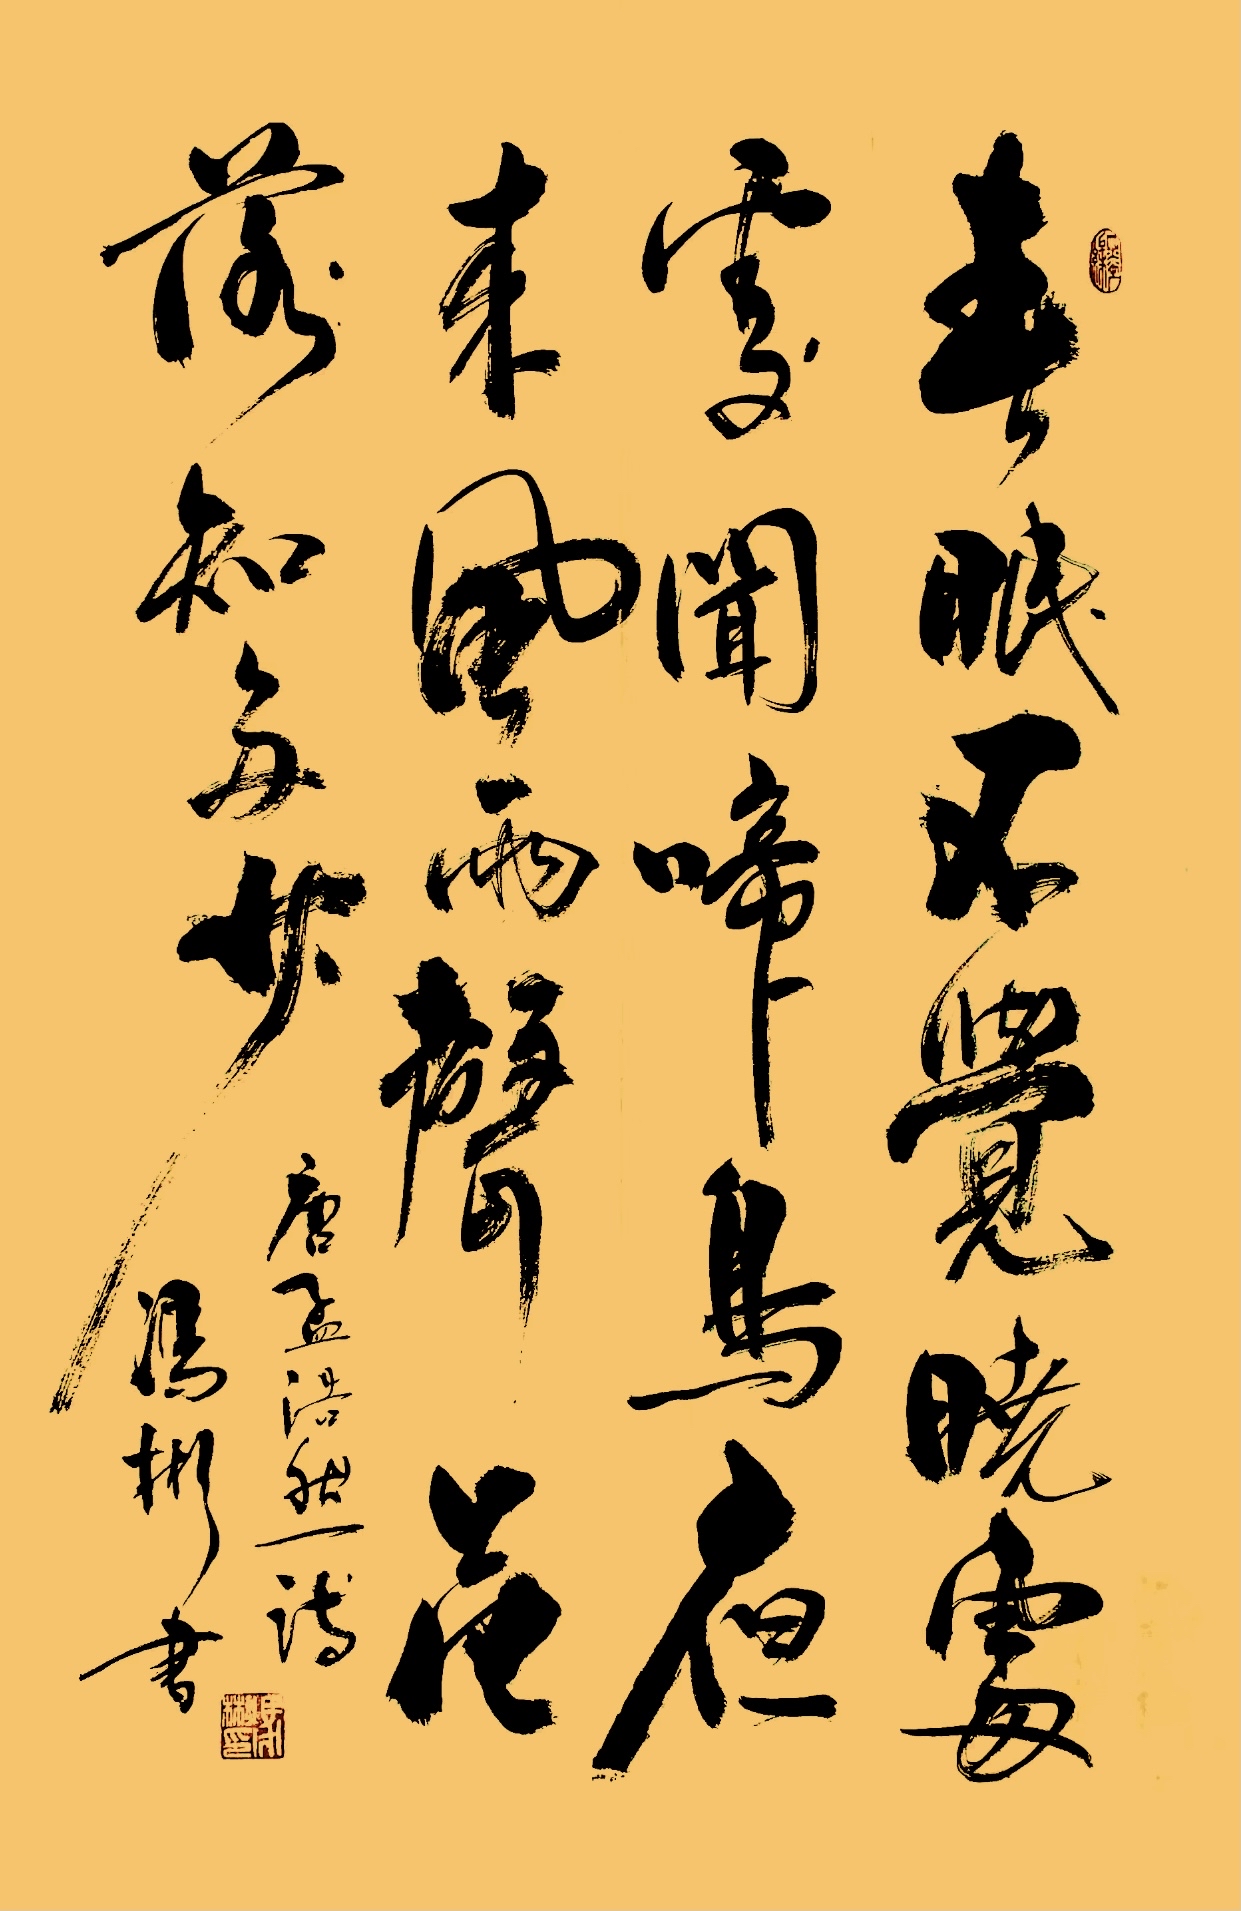 春眠不覺曉處
處聞啼鳥夜
来風雨聲花
落知多少
唐孟浩然詩
馮彬书